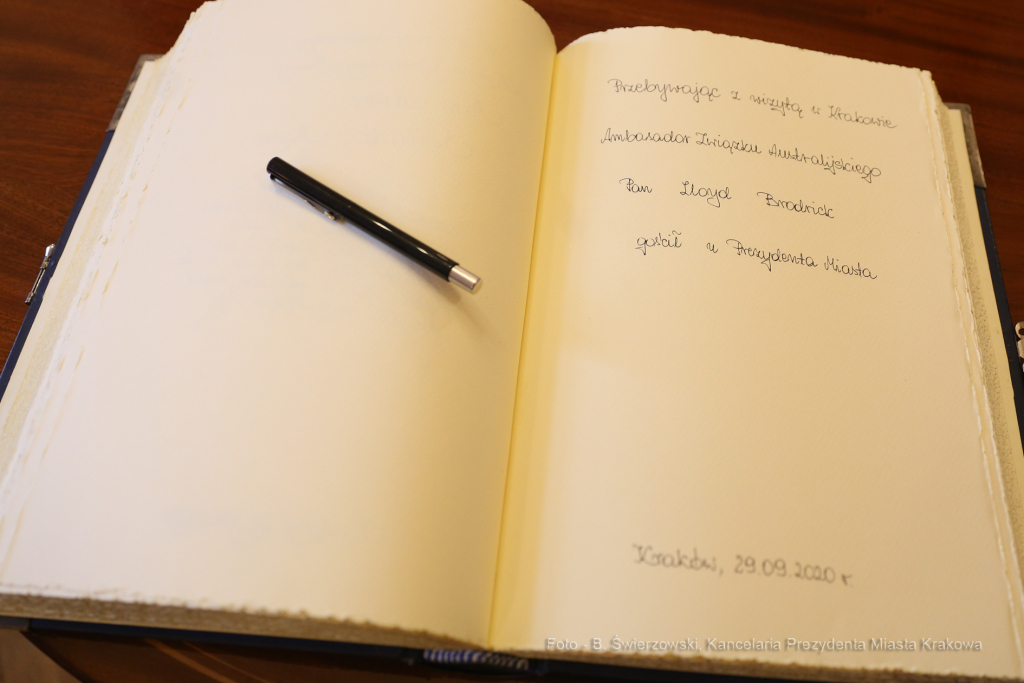 Przebywając z wizytą w Krakowie
Ambasador Związku Australijskiego
Pan Lloyd Brodrick
gościł u Prezydenta Miasta
Kraków, 29.09.2020 r
Foto - B. Świerzowski, Kancelaria Prezydenta Miasta Krakowa